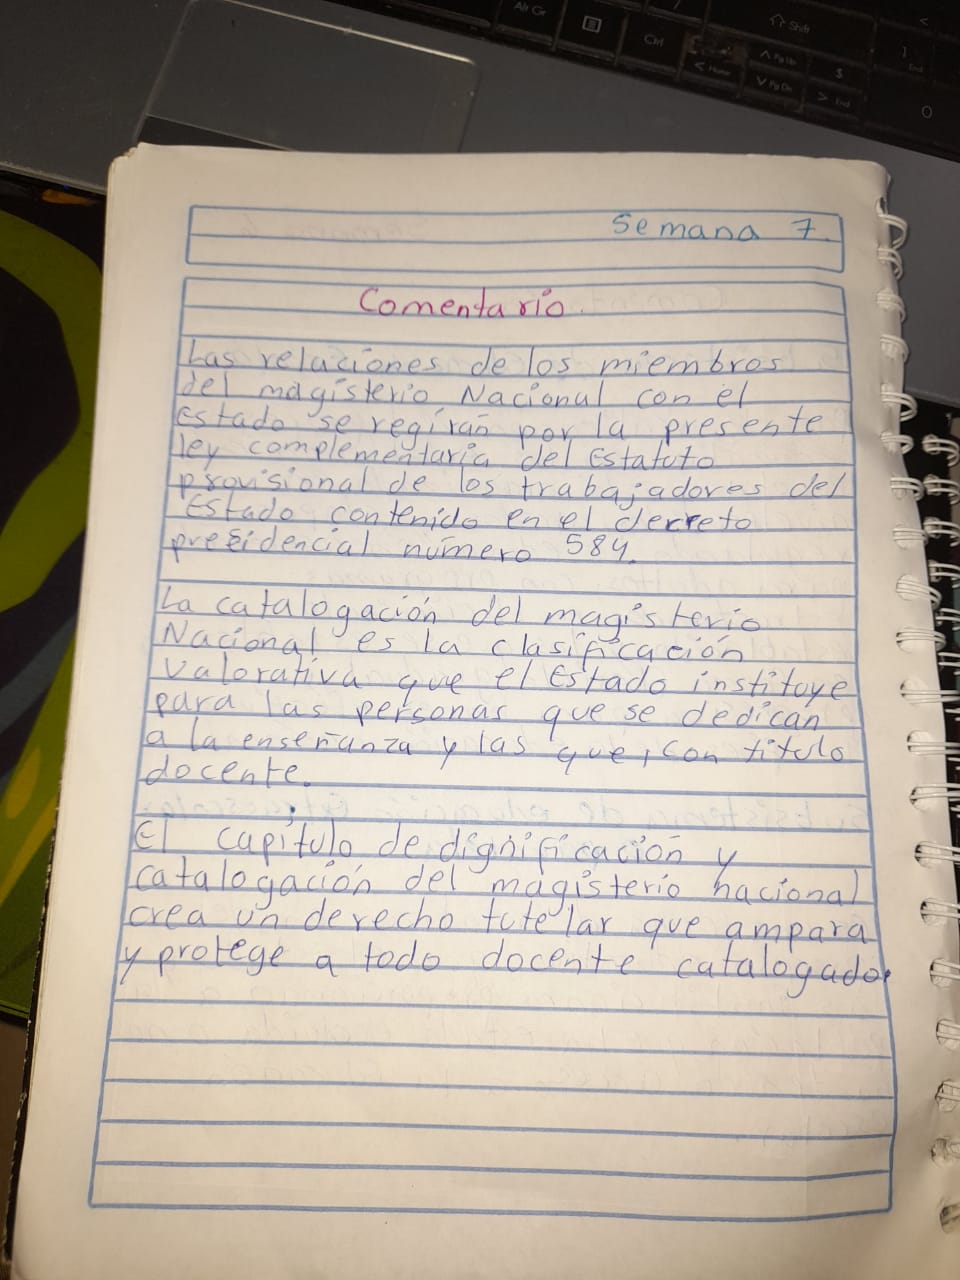 Semana 7.
Comentario.
Las relaciones de los miembros
del magisterio Nacional con el
Estado se regirán por la presente
ley complementaria del Estatuto
provisional de los trabajadores del
Estado contenido en el decreto
presidencial número 584.
La catalogación del magisterio
Nacional es la clasificación
valorativa que el Estado instituye
para las personas que se dedican
a la enseñanza y las que, con titulo
docente.
El capítulo de dignificación y
catalogación del magisterio nacional
crea un derecho tutelar que ampara
y protege a todo docente catalogado.
Alt Gr
Ctrl
Shift
Home
Pg Up
Pg Dn
End
$
End
0